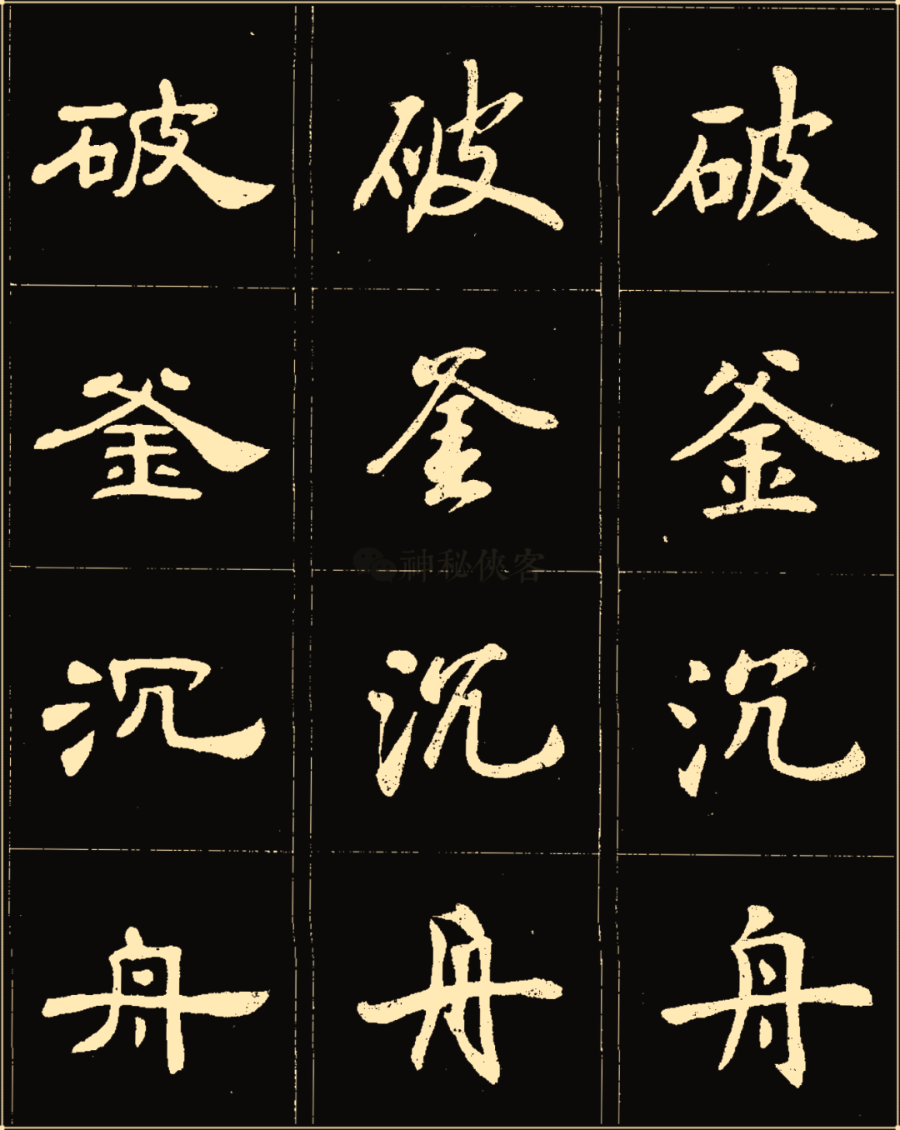 破 破 破
釜 釜 釜
神秘侠客
沉 沉 沉
舟 舟 舟